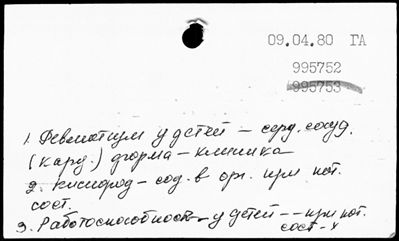 09.04.80 ГА
995752
995753
1. Ревматизм у детей – серд. сосуд.
(кард.) форма – клиника
2. Кислород – сод. в орг. при пат.
сост.
3. Работоспособность – у детей – – при пат.
сост-х